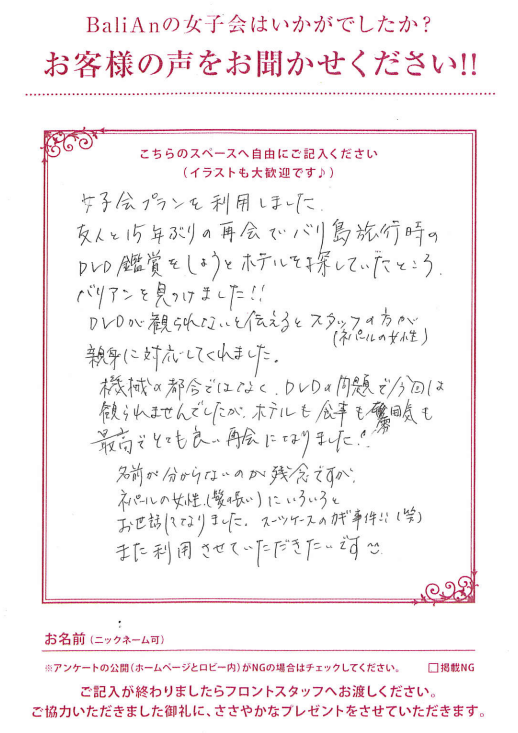 BaliAnの女子会はいかがでしたか?
お客様の声をお聞かせください!!
こちらのスペースへ自由にご記入ください
(イラストも大歓迎です♪)
女子会プランを利用しました.
友人と15年ぶりの再会でバリ島旅行時の
DVD鑑賞をしようとホテルを探していたところ.
バリアンを見つけました!!
DVDが観られないと伝えるとスタッフの方が
(ネパールの女性)
親身に対応してくれました。
機械の都合ではなく、DVDの問題で今回は
観られませんでしたが、ホテルも食事も雰囲気も
最高でとても良い再会になりました!!
名前が分からないのが残念ですが、
ネパールの女性.(髪の長い)にいろいろと
お世話になりました. スーツケースのカギ事件!!(笑)
また利用させていただきたいです
お名前(ニックネーム可)
※アンケートの公開(ホームページとロビー内)がNGの場合はチェックしてください。 □掲載NG
ご記入が終わりましたらフロントスタッフへお渡しください。
ご協力いただきました御礼に、ささやかなプレゼントをさせていただきます。